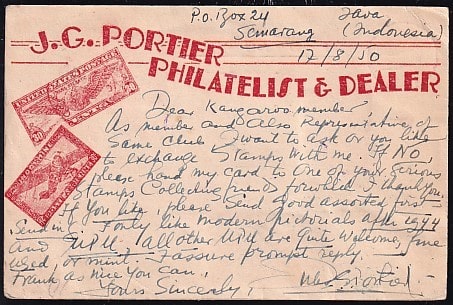 P.O. Box 24 Java
Semarang (Indonesia)
J.G. PORTIER 17/8/50
PHILATELIST & DEALER
UNITED STATES POSTAGE
Dear Kangaroo member
As member and also Representative of
Same club I want to ask or you like
to exchange Stamps with me. If NO
please hand my card to one of your serious
Stamps Collecting friends forward. I thank you.
If you like, please Send good assorted first
Send in Forty like modern Pictorials after 1944
and UPU. all other UPU are quite Welcome, fine
used, or mint. I assure prompt reply.
Frank as nice you can,
Yours Sincerely,